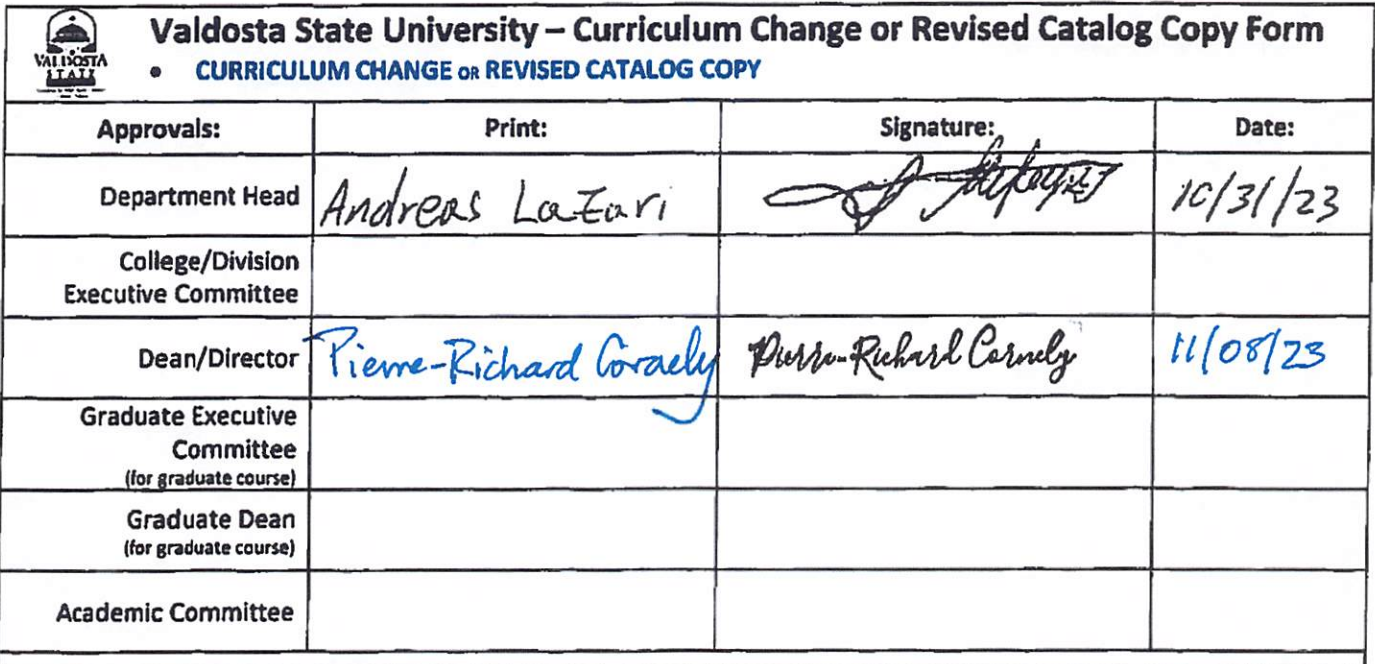 VALDOSTA
STATE
Valdosta State University – Curriculum Change or Revised Catalog Copy Form
• CURRICULUM CHANGE OR REVISED CATALOG COPY
Approvals: Print: Signature: Date:
Department Head Andreas Lazari 10/31/23
College/Division
Executive Committee
Dean/Director Pierre-Richard Cornely Pierre-Richard Cornely 11/08/23
Graduate Executive
Committee
(for graduate course)
Graduate Dean
(for graduate course)
Academic Committee